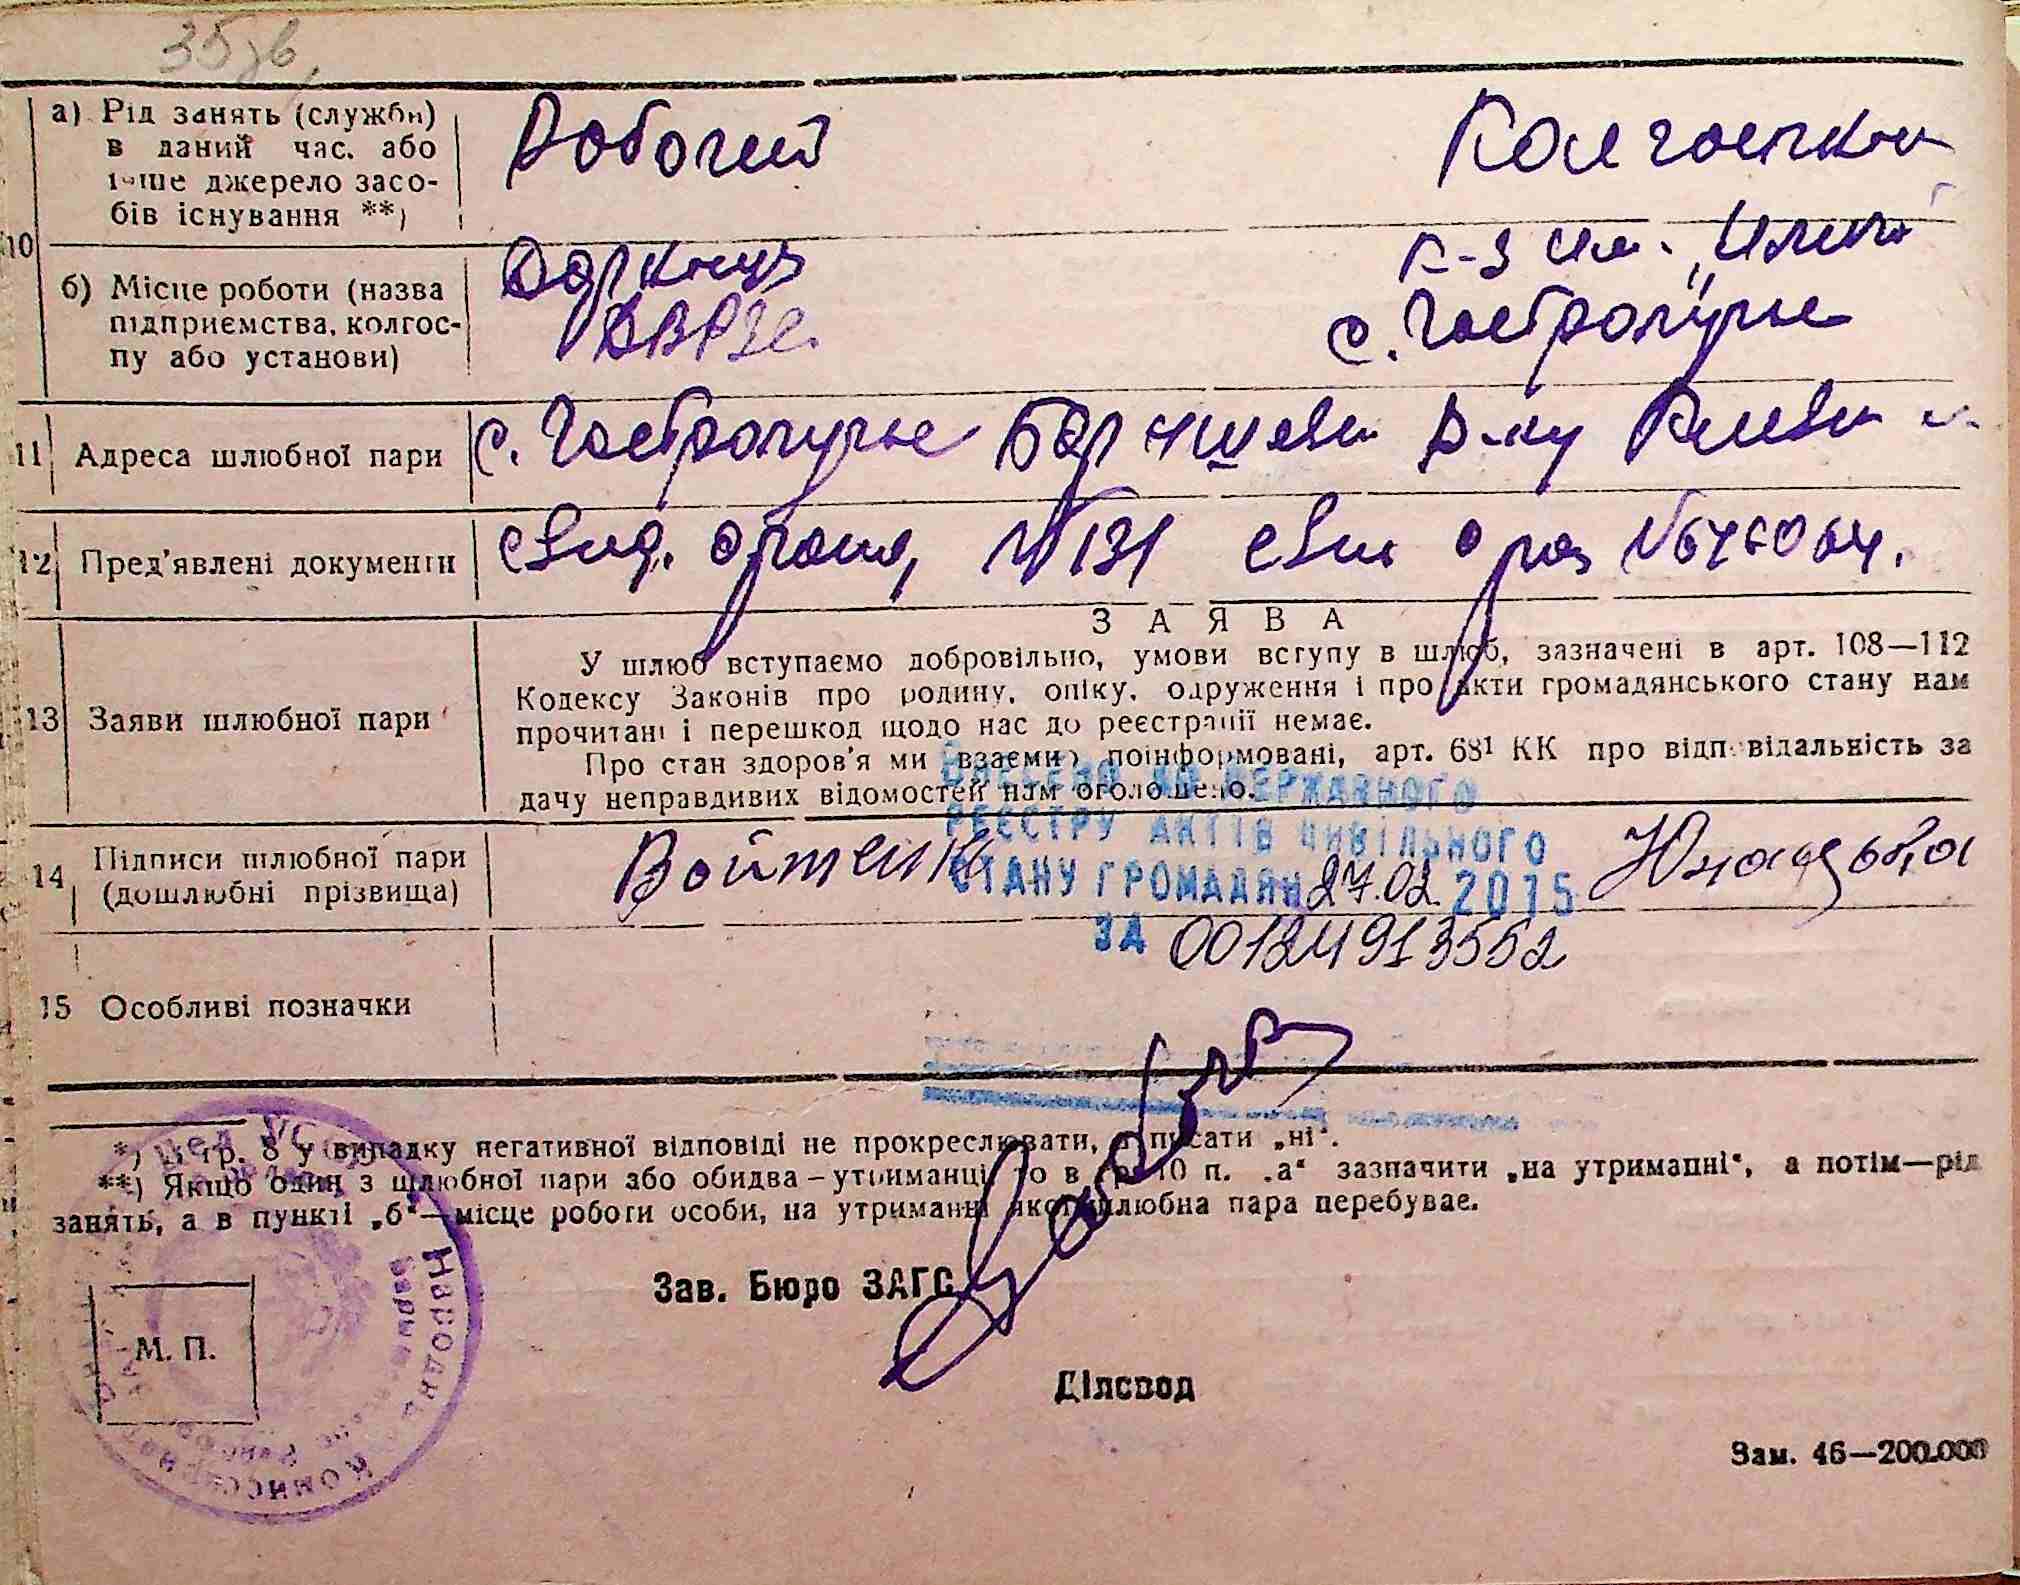 35 зв.
10
а) Рід занять (служби)
в даний час, або
інше джерело засо-
бів існування **)
Робочий
Колгоспниц
б) Місце роботи (назва
підприємства, колгос-
пу або установи)
Дарниця
ДВРЗ
к-з им. „Ілліча"
с. Гостролуччє
11 Адреса шлюбної пари
с. Гостролуччє Баришевськ р-ну Київськ
12 Пред'явлені документи
свид. о рожд, № 131 свид о рож №
13 Заяви шлюбної пари
ЗАЯВА
У шлюб вступаємо добровільно, умови вступу в шлюб, зазначені в арт. 108—112
Кодексу Законів про родину, опіку, одруження і про акти громадянського стану нам
прочитані і перешкод щодо нас до реєстрації немає.
Про стан здоров'я ми взаємно поінформовані, арт. 68¹ КК про відповідальність за
дачу неправдивих відомостей нам оголошено.
ВНЕСЕНО ДО ДЕРЖАВНОГО
РЕЄСТРУ АКТІВ ЦИВІЛЬНОГО
СТАНУ ГРОМАДЯН 27.02. 2015
ЗА 00124913552
14 Підписи шлюбної пари
(дошлюбні прізвища)
Войтенко
15 Особливі позначки
*) В гр. 8 у випадку негативної відповіді не прокреслювати, а писати „ні".
**) Якщо один з шлюбної пари або обидва – утриманці, то в гр. 10 п. „а" зазначити „на утриманні", а потім—рід
занять, а в пункті „б"—місце роботи особи, на утриманні якої шлюбна пара перебуває.
Зав. Бюро ЗАГС
М. П.
Діловод
Зам. 46—200.000